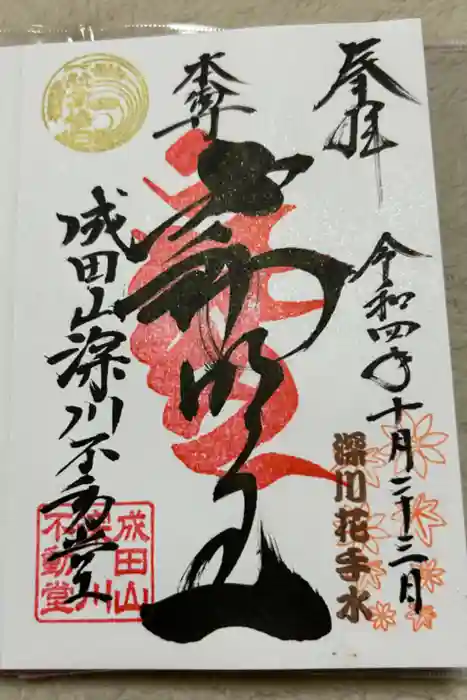 奉拝
令和四年十月二十三日
深川花手水
本尊
不動明王
成田山深川不動堂
成田山
深川
不動堂